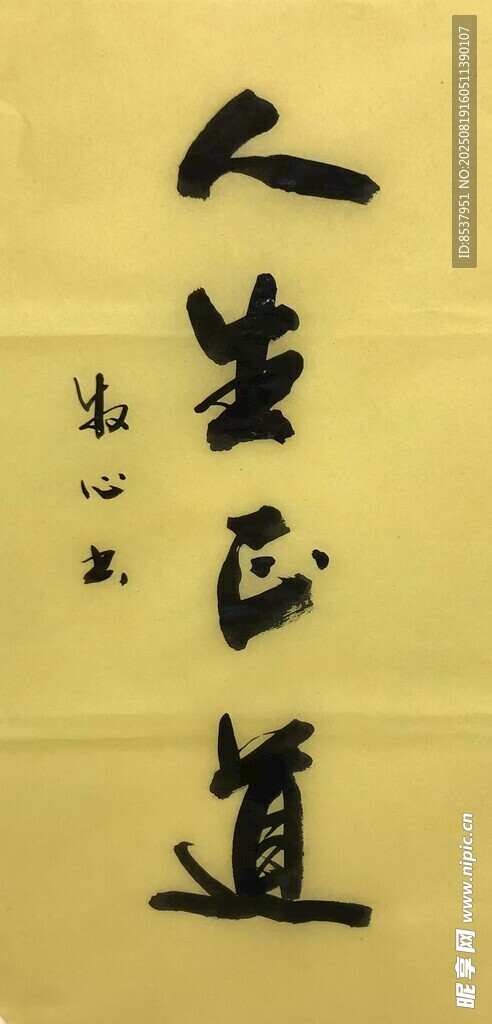 人生正道
牧心书
ID:8537951 NO:20250819160511390107
昵享网 www.nipic.cn